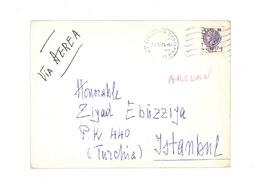 Via AEREA
ARSLAN
Honorable
Ziyad Ebüzziya
P.K 440
(Turchia) Istanbul